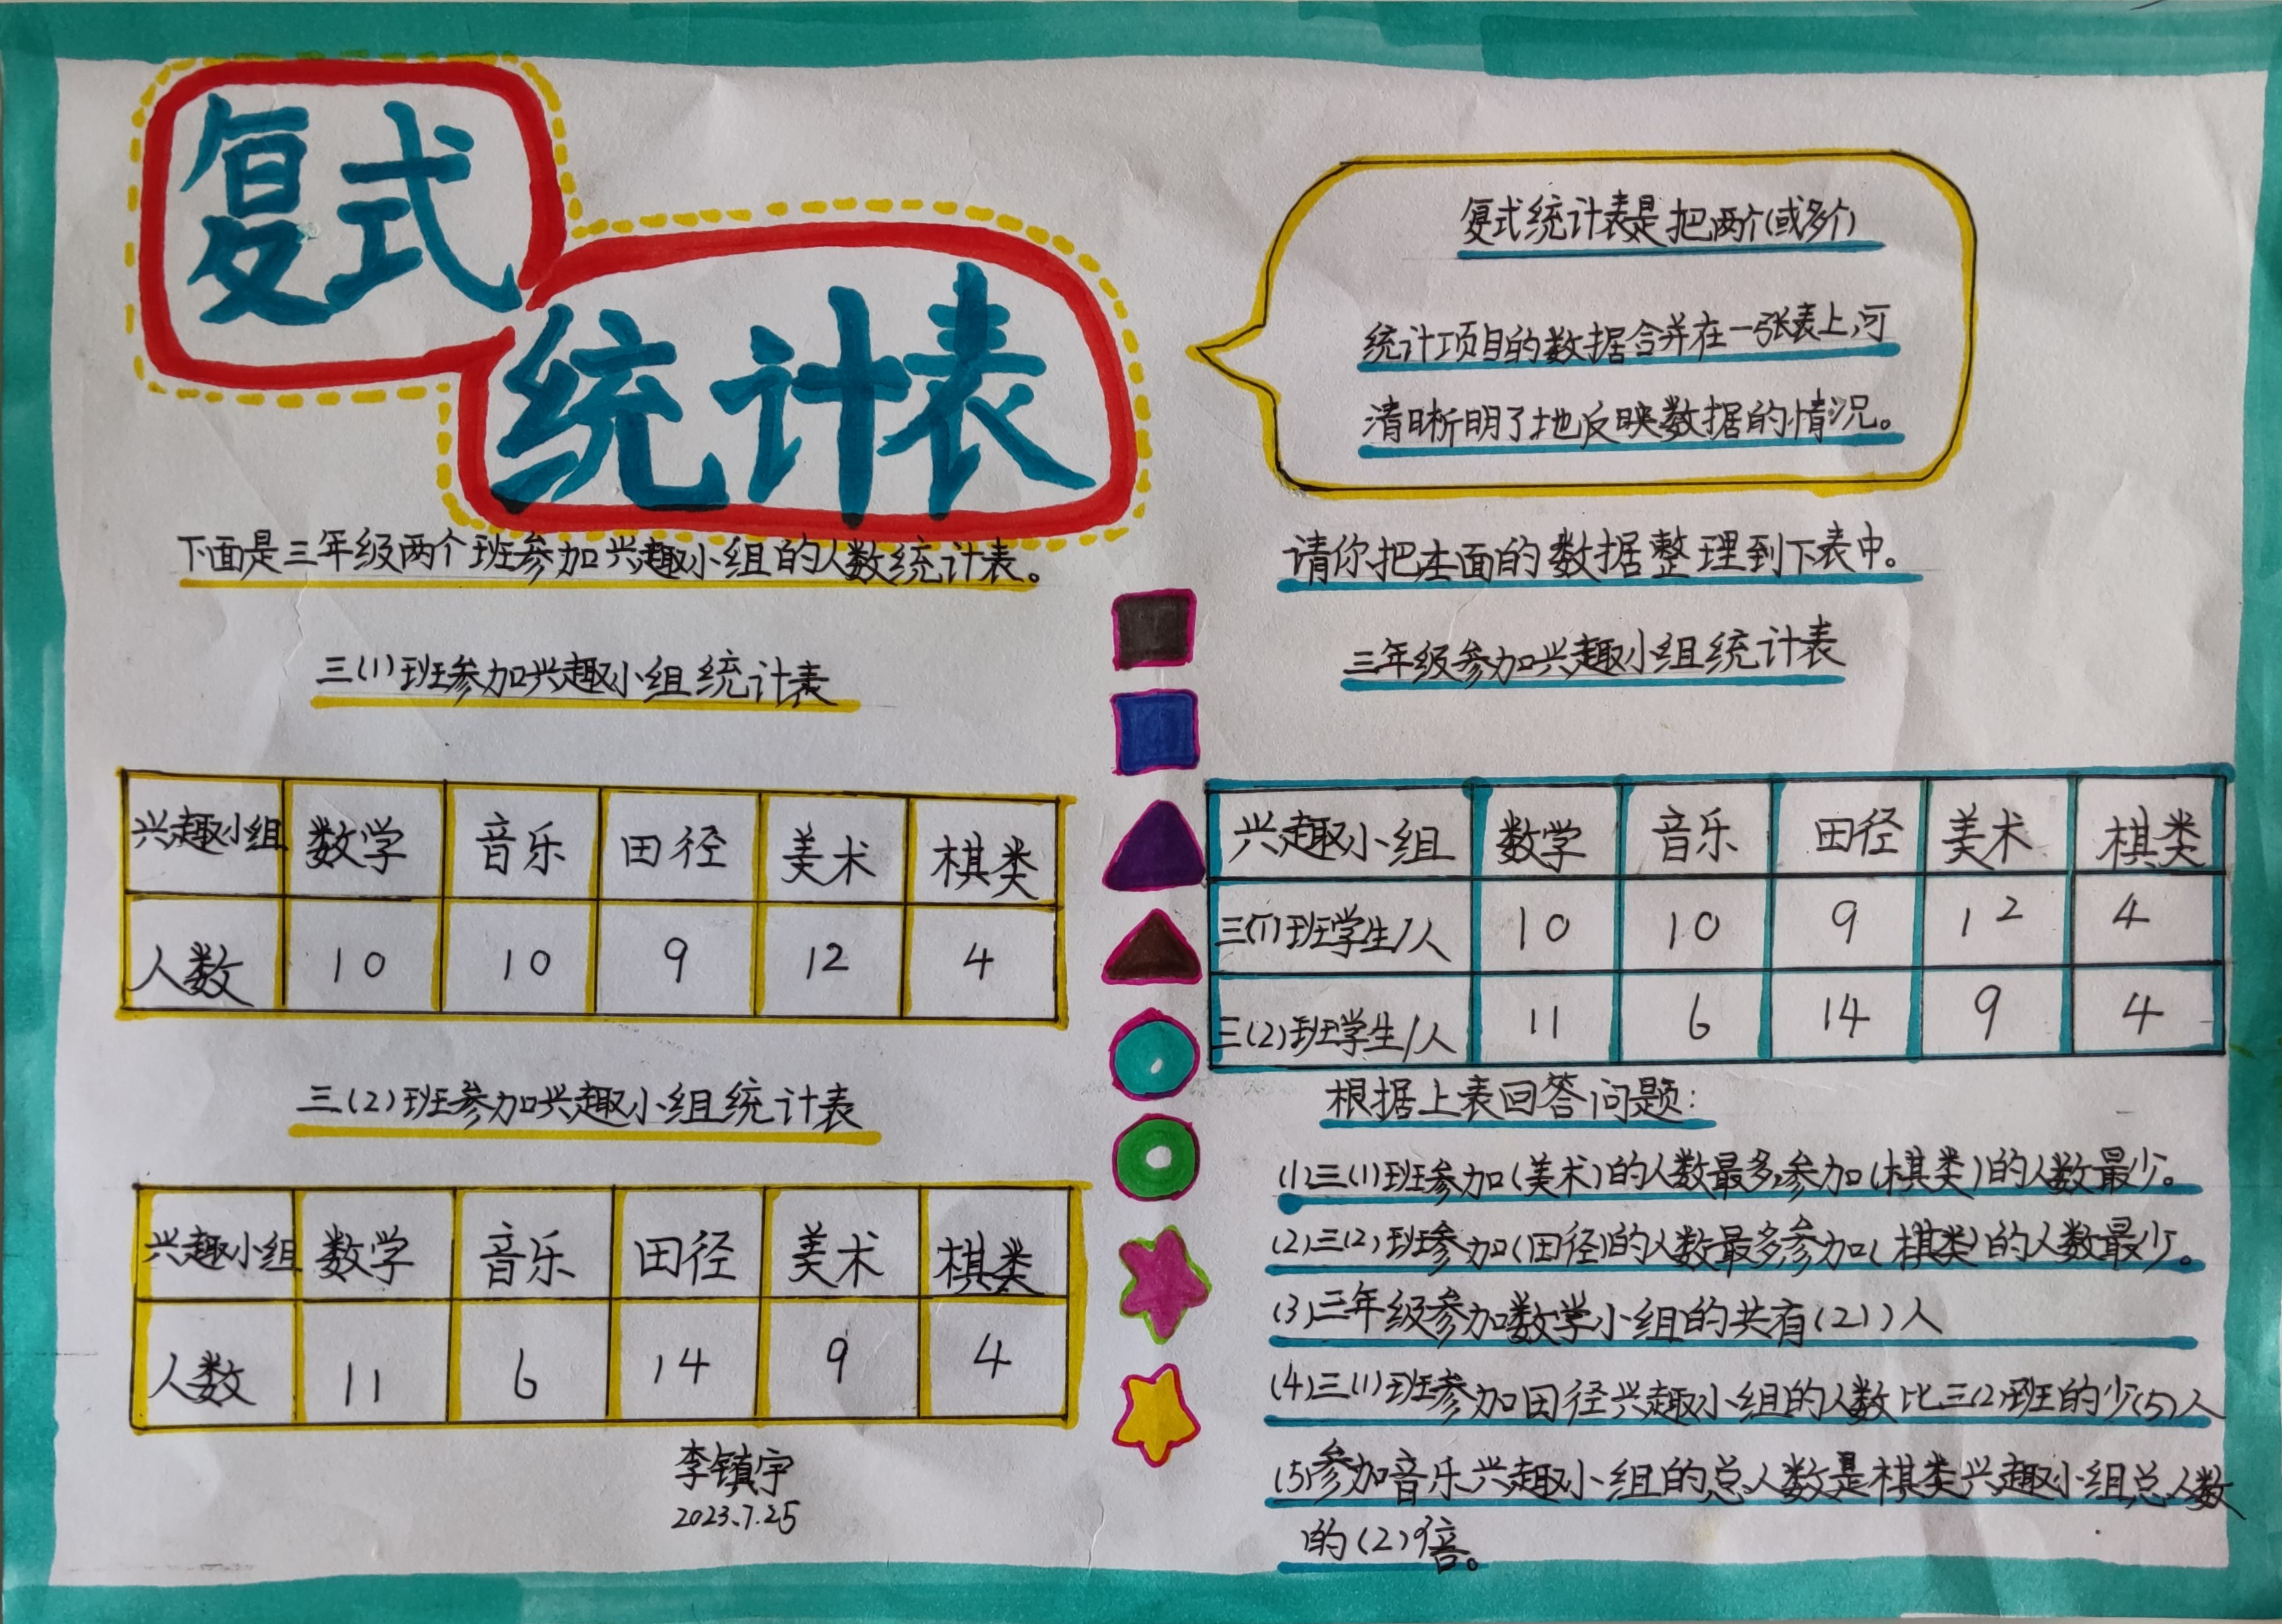 复式
统计表
复式统计表是把两个(或多个)
统计项目的数据合并在一张表上,可
清晰明了地反映数据的情况。
下面是三年级两个班参加兴趣小组的人数统计表。
三(1)班参加兴趣小组统计表
兴趣小组 数学 音乐 田径 美术 棋类
人数 10 10 9 12 4
三(2)班参加兴趣小组统计表
兴趣小组 数学 音乐 田径 美术 棋类
人数 11 6 14 9 4
李镇宇
2023.7.25
请你把左面的数据整理到下表中。
三年级参加兴趣小组统计表
兴趣小组 数学 音乐 田径 美术 棋类
三(1)班学生/人 10 10 9 12 4
三(2)班学生/人 11 6 14 9 4
根据上表回答问题:
(1)三(1)班参加(美术)的人数最多,参加(棋类)的人数最少。
(2)三(2)班参加(田径)的人数最多参加(棋类)的人数最少。
(3)三年级参加数学小组的共有(21)人
(4)三(1)班参加田径兴趣小组的人数比三(2)班的少(5)人
(5)参加音乐兴趣小组的总人数是棋类兴趣小组总人数
的(2)倍。